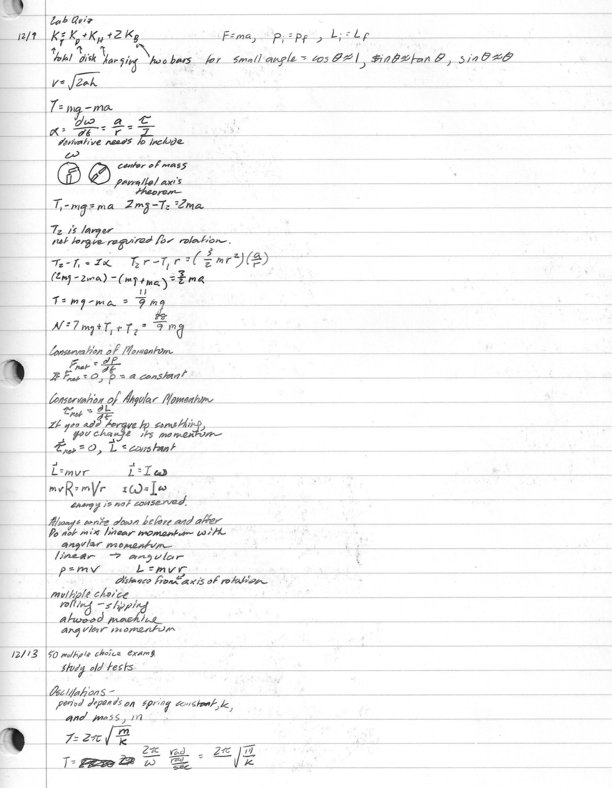 Lab Quiz
12/9 K_T = K_D + K_H + 2K_B F=ma, P_i = P_f, L_i = L_f
total disk hanging two bars for small angle = cos θ≈1, sinθ≈tan θ, sin θ≈θ
v = √2ah
T = mg - ma
α = dω/dt = a/r = τ/I
derivative needs to include
ω
center of mass
parrallel axis
theorem
T₁ - mg = ma 2mg - T₂ = 2ma
T₂ is larger
net torque required for rotation.
T₂ - T₁ = Iα T₂r - T₁r = (3/2 mr²)(a/r)
(2mg - 2ma) - (mg + ma) = 3/2 ma
T = mg - ma = 11/9 mg
N = 7mg + T₁ + T₂ = 88/9 mg
Conservation of Momentum
F_net = dP/dt
If F_net = 0, p = a constant
Conservation of Angular Momentum
τ_net = dL/dt
If you add torque to something,
you change its momentum
τ_net = 0, L = constant
L = mvr L = Iω
mvR = mVr Iω = Iω
energy is not conserved.
Always write down before and after
Do not mix linear momentum with
angular momentum
linear → angular
p = mv L = mvr
distance from axis of rotation
multiple choice
rolling - slipping
atwood machine
angular momentum
12/13 50 multiple choice exam
study old tests
Oscillations -
period depends on spring constant, k,
and mass, m
T = 2π √m/k
T = 2π/ω rad/rad/sec = 2π √m/k